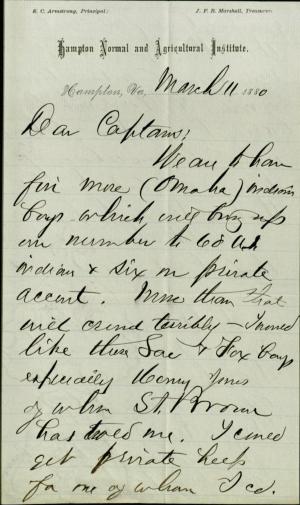 S. C. Armstrong, Principal. J. F. B. Marshall, Treasurer.
Hampton Normal and Agricultural Institute.
Hampton, Va, March 11 1880
Dear Captain;
We are to have
five more (Omaha) indian
boys which will bring up
our number to 60
indian & six on private
account. More than that
will crowd terribly – I would
like these Sac & Fox boys
especially Henry Jones
of whom St. Brown
has told me. I could
get private help
for one of whom I cd.